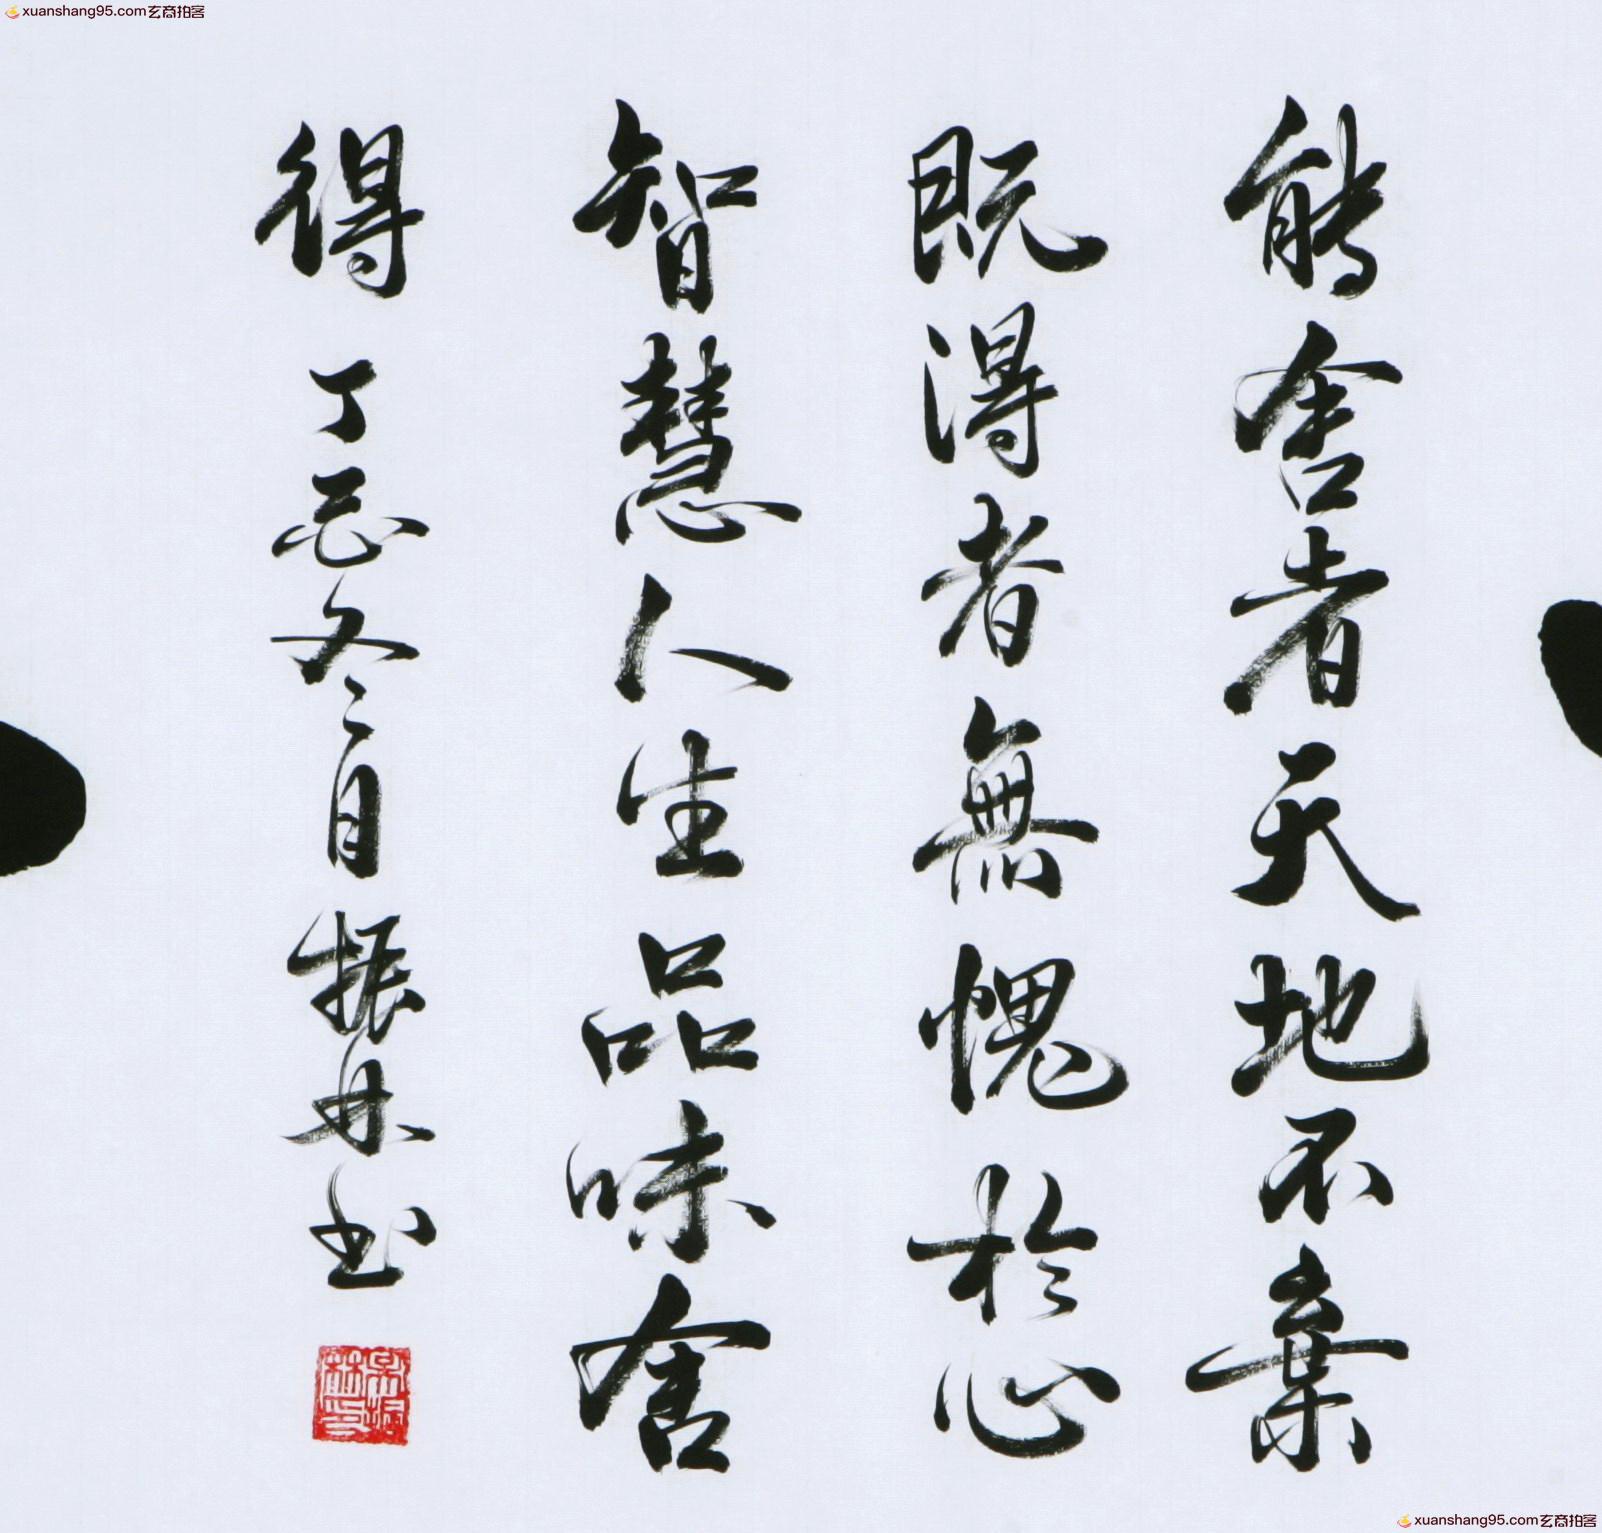 xuanshang95.com玄商拍客
能舍者天地不棄
既得者無愧於心
智慧人生品味舍
得 丁亥冬月振林书
xuanshang95.com玄商拍客